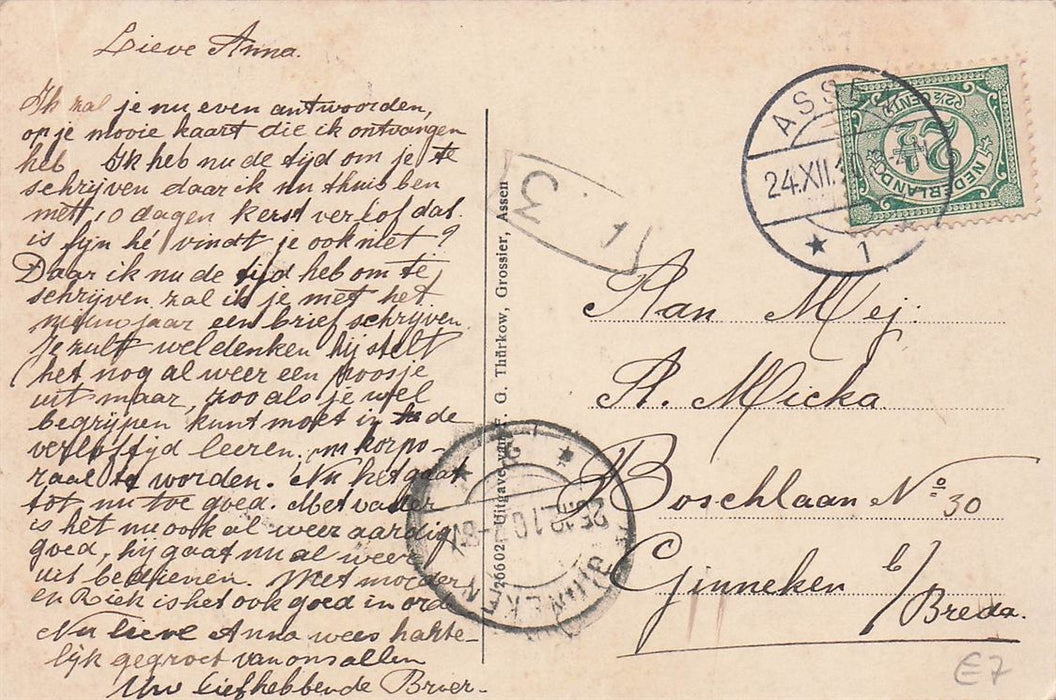 Lieve Anna.
Ik zal je nu even antwoorden,
op je mooie kaart die ik ontvangen
heb Ik heb nu de tijd om je te
schrijven daar ik nu thuis ben
met, 10 dagen kerst verlof dat
is fijn hé vindt je ook niet?
Daar ik nu de tijd heb om te
schrijven, zal ik je met het
nieuwjaar een brief schrijven.
Je zult wel denken hij stelt
het nog al weer een poosje
uit maar, zoo als je wel
begrijpen kunt moet in de
verloftijd leeren, om korpo-
raal te worden. Nu het gaat
tot nu toe goed. Met vader
is het nu ook al weer aardig
goed, hij gaat nu al weer
uit bedienen. Met moeder
en Riek is het ook goed in orde
Nu lieve Anna wees harte-
lijk gegroet van ons allen
Uw liefhebbende Broer-
26602 Uitgave van F. G. Thürkow, Grossier, Assen
3 1
ASSEN
24.XII.1
1
NEDERLAND
2½
2½ CENT
Aan Mej.
A. Micka
Boschlaan No 30
Ginneken b/
Breda.
GINNEKEN
25.12.10
2
E7